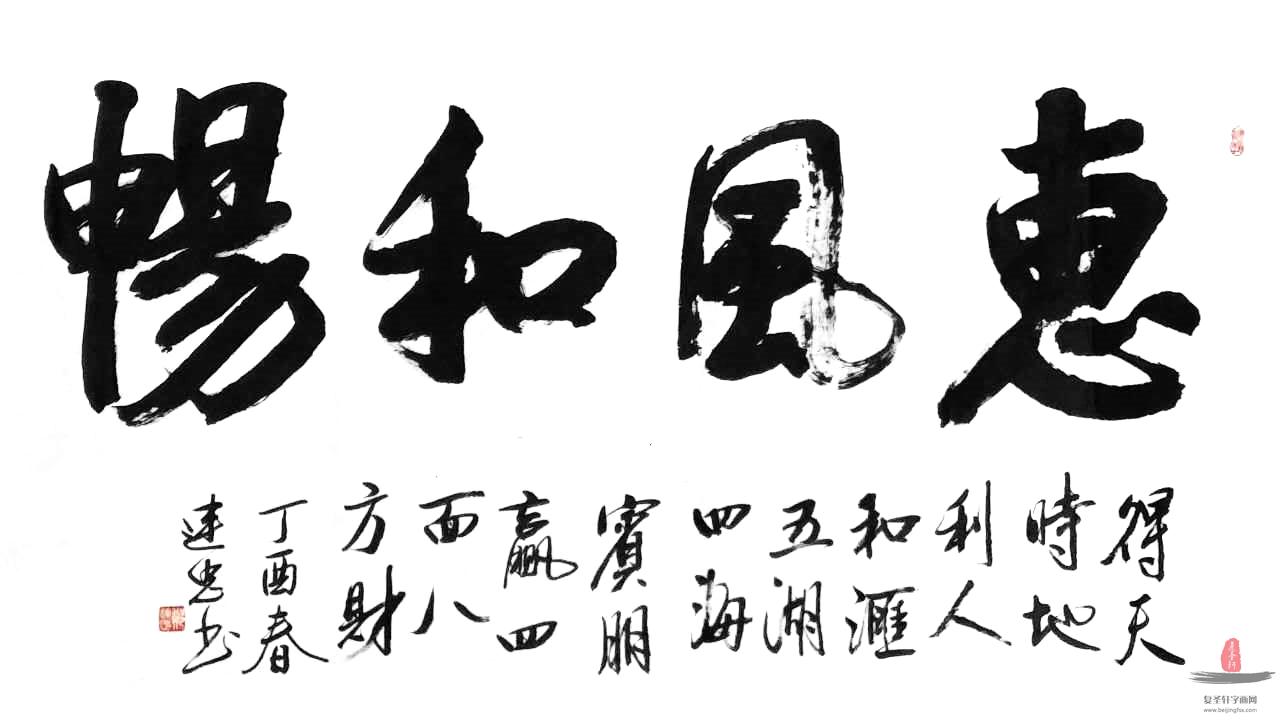 惠風和暢
得天
時地
利人
和滙
五湖
四海
賓朋
贏四
面八
方財
丁酉春
建忠书
复圣轩字画网
www.beijingfsx.com